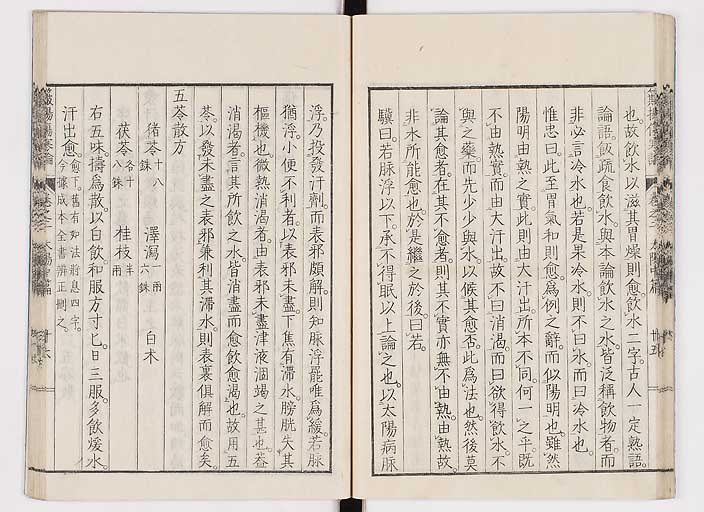 也故飮水以滋其胃燥則愈飮水二字古人一定熟語
論語飯疏食飮水與本論飮水之水皆泛稱飮物者而
非必言冷水也若是果冷水則不曰水而曰冷水也
惟忠曰此至胃氣和則愈爲例之辭而似陽明也雖然
陽明由熱之實此則由大汗出所本不同何一之乎既
不由熱實而由大汗出故不曰消渴而曰欲得飮水不
與之藥而先少少與水以候其愈否此爲法也然後莫
論其愈者在其不愈者則其不實亦無不由熱由熱故
非水所能愈也於是繼之於後曰若
驥曰若脉浮以下承不得眠以上論之也以太陽病脉
浮乃投發汗劑而表邪頗解則知脉浮罷唯爲緩若脉
猶浮小便不利者以表邪未盡下焦有滯水膀胱失其
樞機也微熱消渴者由表邪未盡津液涸竭之甚也蓋
消渴者言其所飮之水皆消盡而愈飮愈渴也故用五
苓以發未盡之表邪兼利其滯水則表裏俱解而愈矣
五苓散方
猪苓十八銖 澤瀉一兩六銖 白朮
茯苓各十八銖 桂枝半兩
右五味擣爲散以白飮和服方寸匕日三服多飮煖水
汗出愈愈下舊有如法將息四字今據成本全書辨正刪之
太陽中篇